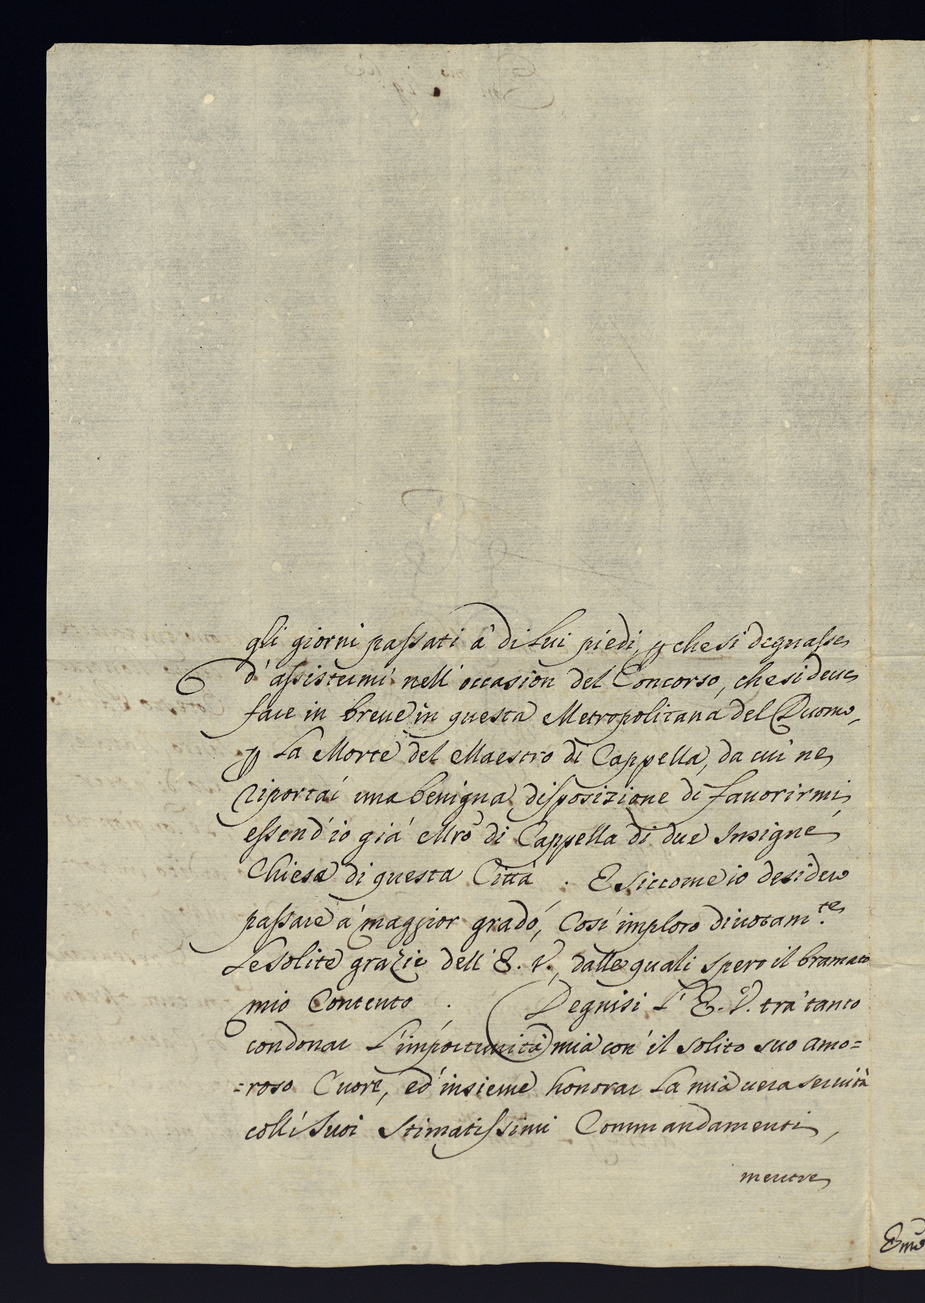 gli giorni passati a' di Lui piedi, ꝑ che si degnasse
d'assistermi nell'occasion del Concorso, che si deve
fare in breve in questa Metropolitana del Duomo,
ꝑ La Morte del Maestro di Cappella, da cui ne
riportai una benigna disposizione di favorirmi
essend'io già Mro di Cappella di due Insigne
Chiese di questa Città. E siccome io desidero
passare à maggior grado, Così imploro divotam.te
Le solite grazie dell'E. V., dalle quali spero il bramato
mio Contento. Degnisi L'E. V. trà tanto
condonar L'importunità mia con il solito suo amo=
=roso Cuore, ed insieme honorar La mia vera servitù
colli Suoi Stimatissimi Commandamenti,
mentre
Emo